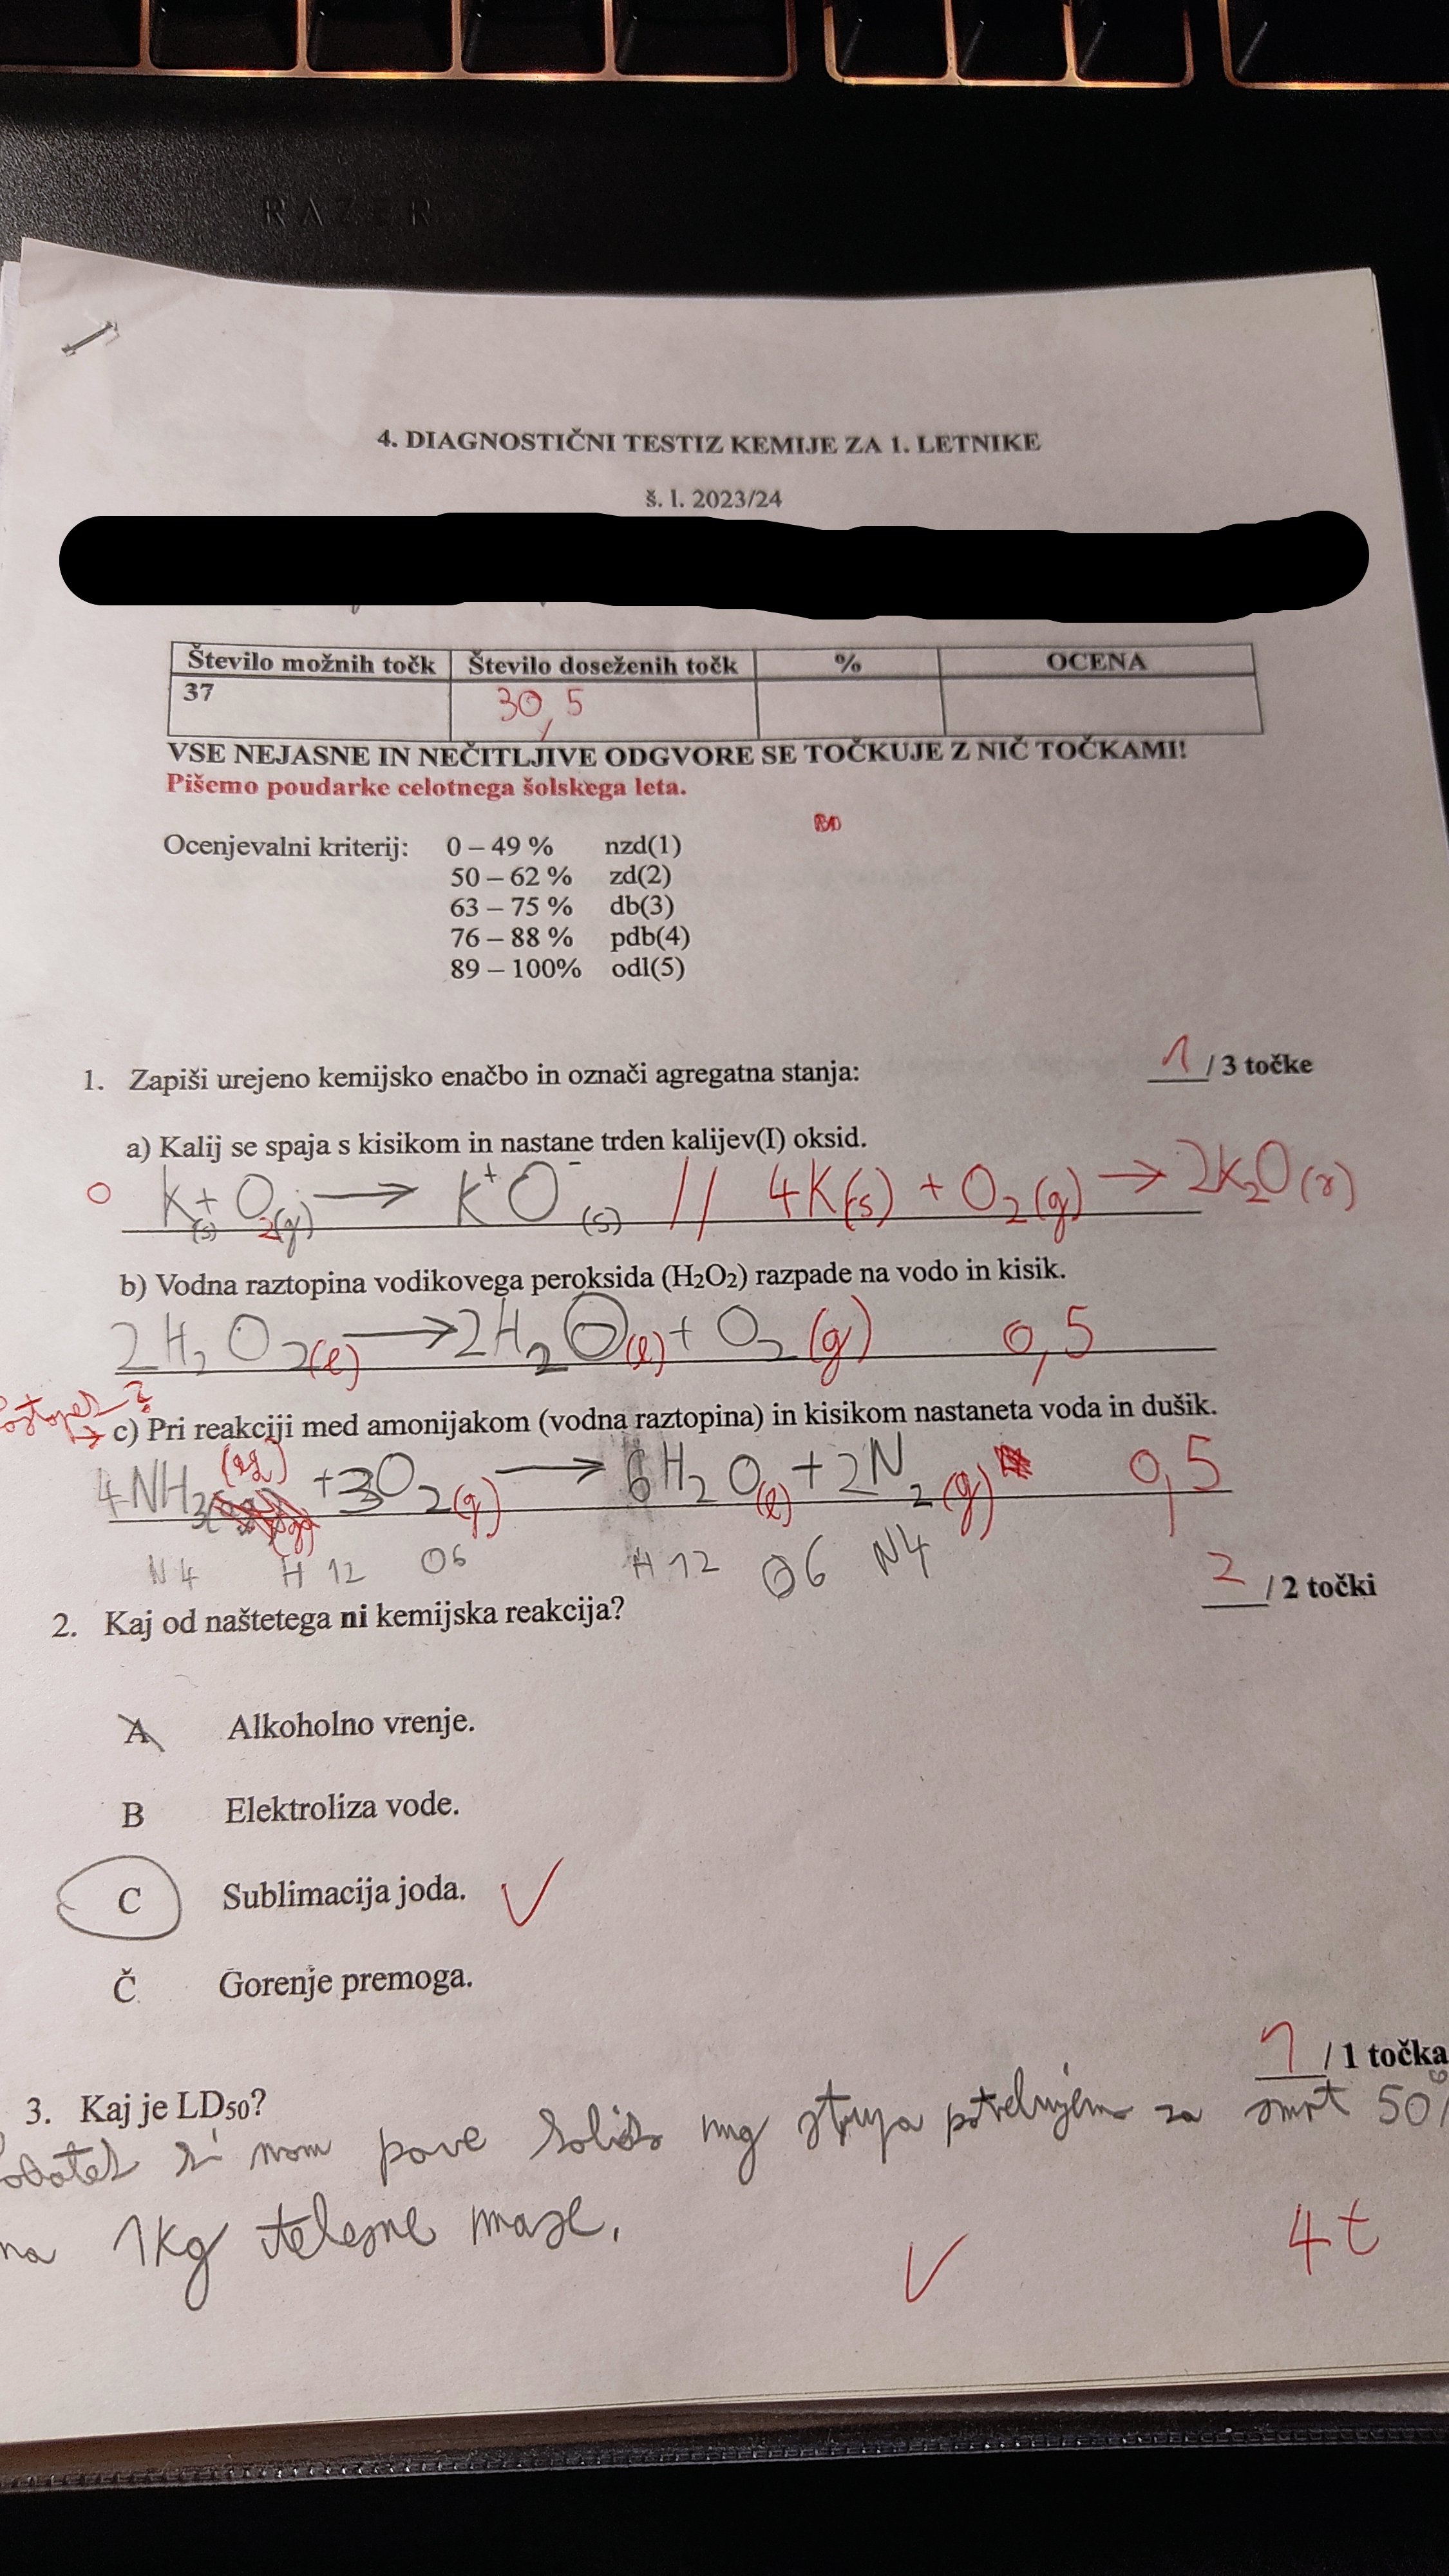 RAZER
4. DIAGNOSTIČNI TESTIZ KEMIJE ZA 1. LETNIKE
š. l. 2023/24
Število možnih točk Število doseženih točk % OCENA
37 30,5
VSE NEJASNE IN NEČITLJIVE ODGVORE SE TOČKUJE Z NIČ TOČKAMI!
Pišemo poudarke celotnega šolskega leta.
Ocenjevalni kriterij: 0 – 49 % nzd(1)
50 – 62 % zd(2)
63 – 75 % db(3)
76 – 88 % pdb(4)
89 – 100% odl(5)
1. Zapiši urejeno kemijsko enačbo in označi agregatna stanja: 1 / 3 točke
a) Kalij se spaja s kisikom in nastane trden kalijev(I) oksid.
0 K(s) + O2(g) → K⁺O⁻(s) // 4K(s) + O2(g) → 2K2O(s)
b) Vodna raztopina vodikovega peroksida (H2O2) razpade na vodo in kisik.
2H2O2(l) → 2H2O(l) + O2(g) 0,5
c) Pri reakciji med amonijakom (vodna raztopina) in kisikom nastaneta voda in dušik.
4NH3(aq) + 3O2(g) → 6H2O(l) + 2N2(g) 0,5
N4 H12 O6 H12 O6 N4
2 / 2 točki
2. Kaj od naštetega ni kemijska reakcija?
A Alkoholno vrenje.
B Elektroliza vode.
C Sublimacija joda.
Č Gorenje premoga.
1 / 1 točka
3. Kaj je LD50?
nam pove koliko mg strupa potrebujemo za smrt 50%
na 1kg telesne mase.
4t